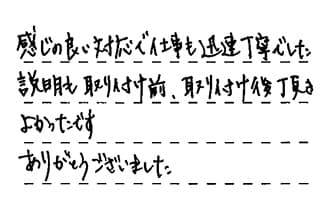 感じの良い対応で仕事も迅速丁寧でした
説明も取り付け前、取り付け後丁寧で
よかったです
ありがとうございました